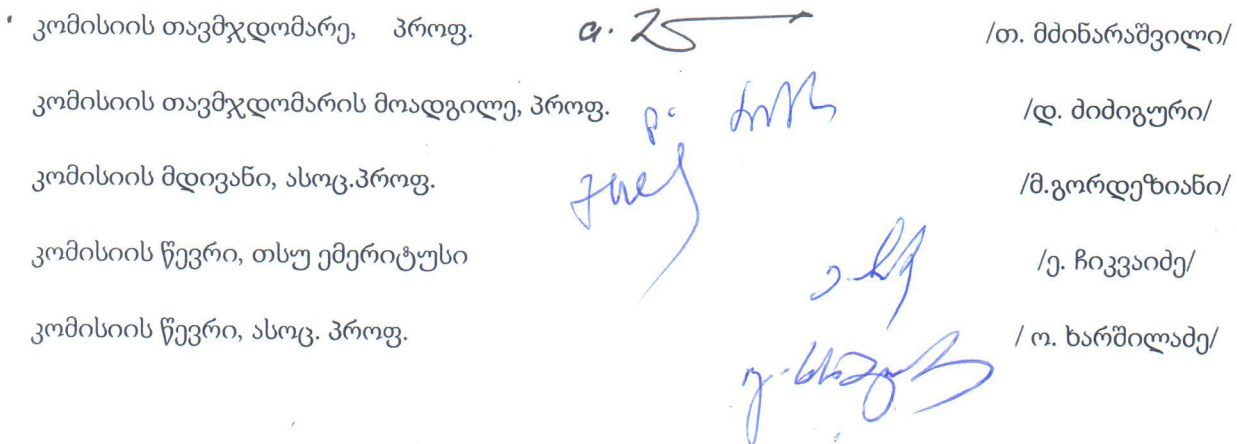 კომისიის თავმჯდომარე, პროფ. /თ. მძინარაშვილი/
კომისიის თავმჯდომარის მოადგილე, პროფ. /დ. ძიძიგური/
კომისიის მდივანი, ასოც.პროფ. /მ.გორდეზიანი/
კომისიის წევრი, თსუ ემერიტუსი /ე. ჩიკვაიძე/
კომისიის წევრი, ასოც. პროფ. / ო. ხარშილაძე/